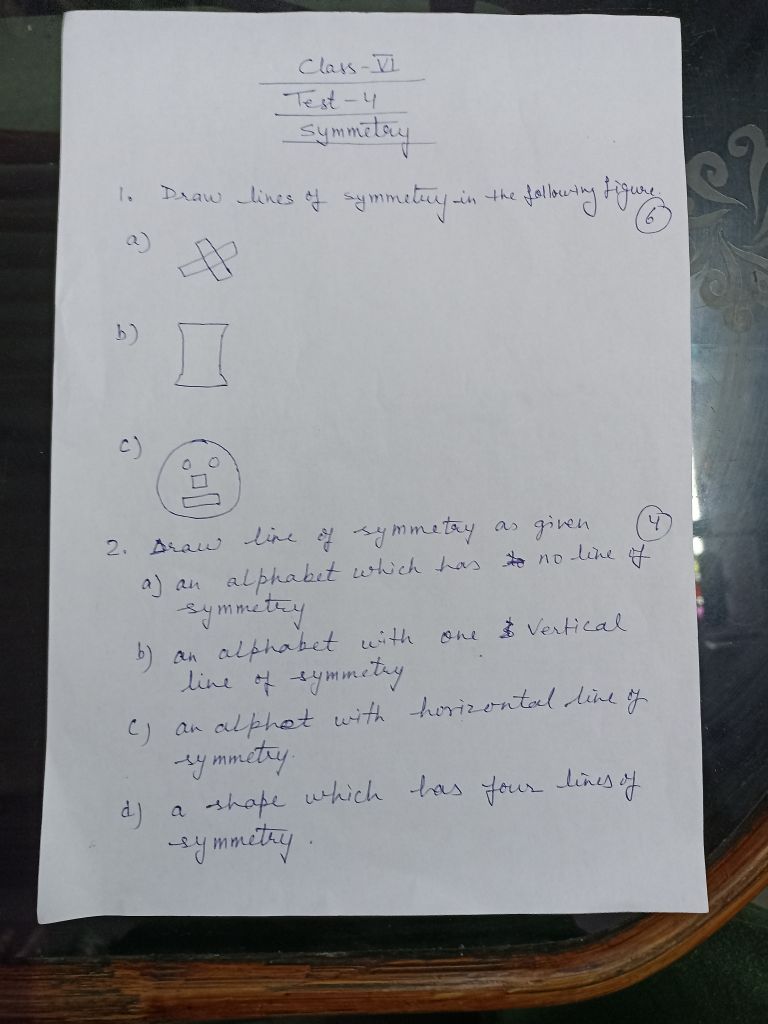 Class-VI
Test-4
Symmetry
1. Draw lines of symmetry in the following figure.
6
a)
b)
c)
2. Draw line of symmetry as given
4
a) an alphabet which has no line of
symmetry
b) an alphabet with one Vertical
line of symmetry
c) an alphet with horizontal line of
symmetry.
d) a shape which has four lines of
symmetry.